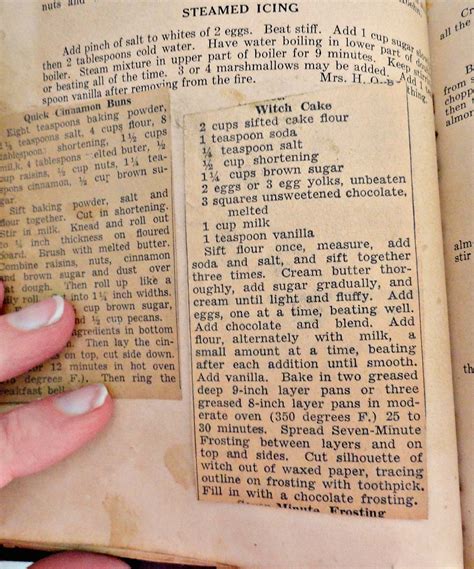 nuts and
STEAMED ICING
Add pinch of salt to whites of 2 eggs. Beat stiff. Add 1 cup sugar
then 2 tablespoons cold water. Have water boiling in lower part of
boiler. Steam mixture in upper part of boiler for 9 minutes. Keep
or beating all of the time. 3 or 4 marshmallows may be added. Add 1
spoon vanilla after removing from the fire. Mrs. H.
thing.
Quick Cinnamon Buns
Eight teaspoons baking powder,
teaspoons salt, 4 cups flour, 8
tablespoons shortening, 1½ cups
milk, 4 tablespoons melted butter, ½
cup raisins, ½ cup nuts, 1¼ tea-
spoons cinnamon, ½ cup brown su-
gar.
Sift baking powder, salt and
flour together. Cut in shortening.
Stir in milk. Knead and roll out
to ¼ inch thickness on floured
board. Brush with melted butter.
Combine raisins, nuts, cinnamon
and brown sugar and dust over
dough. Then roll up like a
roll into 1¼ inch widths.
cup brown sugar,
and ½ cup pecans.
ingredients in bottom
Then lay the cin-
on top, cut side down.
12 minutes in hot oven
degrees F.). Then ring the
breakfast bell
Witch Cake
2 cups sifted cake flour
1 teaspoon soda
¼ teaspoon salt
½ cup shortening
1¼ cups brown sugar
2 eggs or 3 egg yolks, unbeaten
3 squares unsweetened chocolate,
melted
1 cup milk
1 teaspoon vanilla
Sift flour once, measure, add
soda and salt, and sift together
three times. Cream butter thor-
oughly, add sugar gradually, and
cream until light and fluffy. Add
eggs, one at a time, beating well.
Add chocolate and blend. Add
flour, alternately with milk, a
small amount at a time, beating
after each addition until smooth.
Add vanilla. Bake in two greased
deep 9-inch layer pans or three
greased 8-inch layer pans in mod-
erate oven (350 degrees F.) 25 to
30 minutes. Spread Seven-Minute
Frosting between layers and on
top and sides. Cut silhouette of
witch out of waxed paper, tracing
outline on frosting with toothpick.
Fill in with a chocolate frosting.
Minute Frosting
all the
From
chop
then
almon